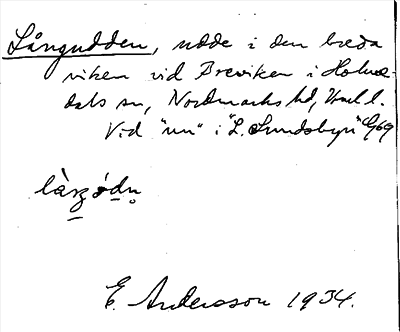 Långudden, udde i den breda
viken vid Breviken i Holme-
dals sn, Nordmarks hd, Vrml l.
Vid "un" i "L. Sundsbyn" 9/69
làŋgódn̥
E. Andersson 1934.